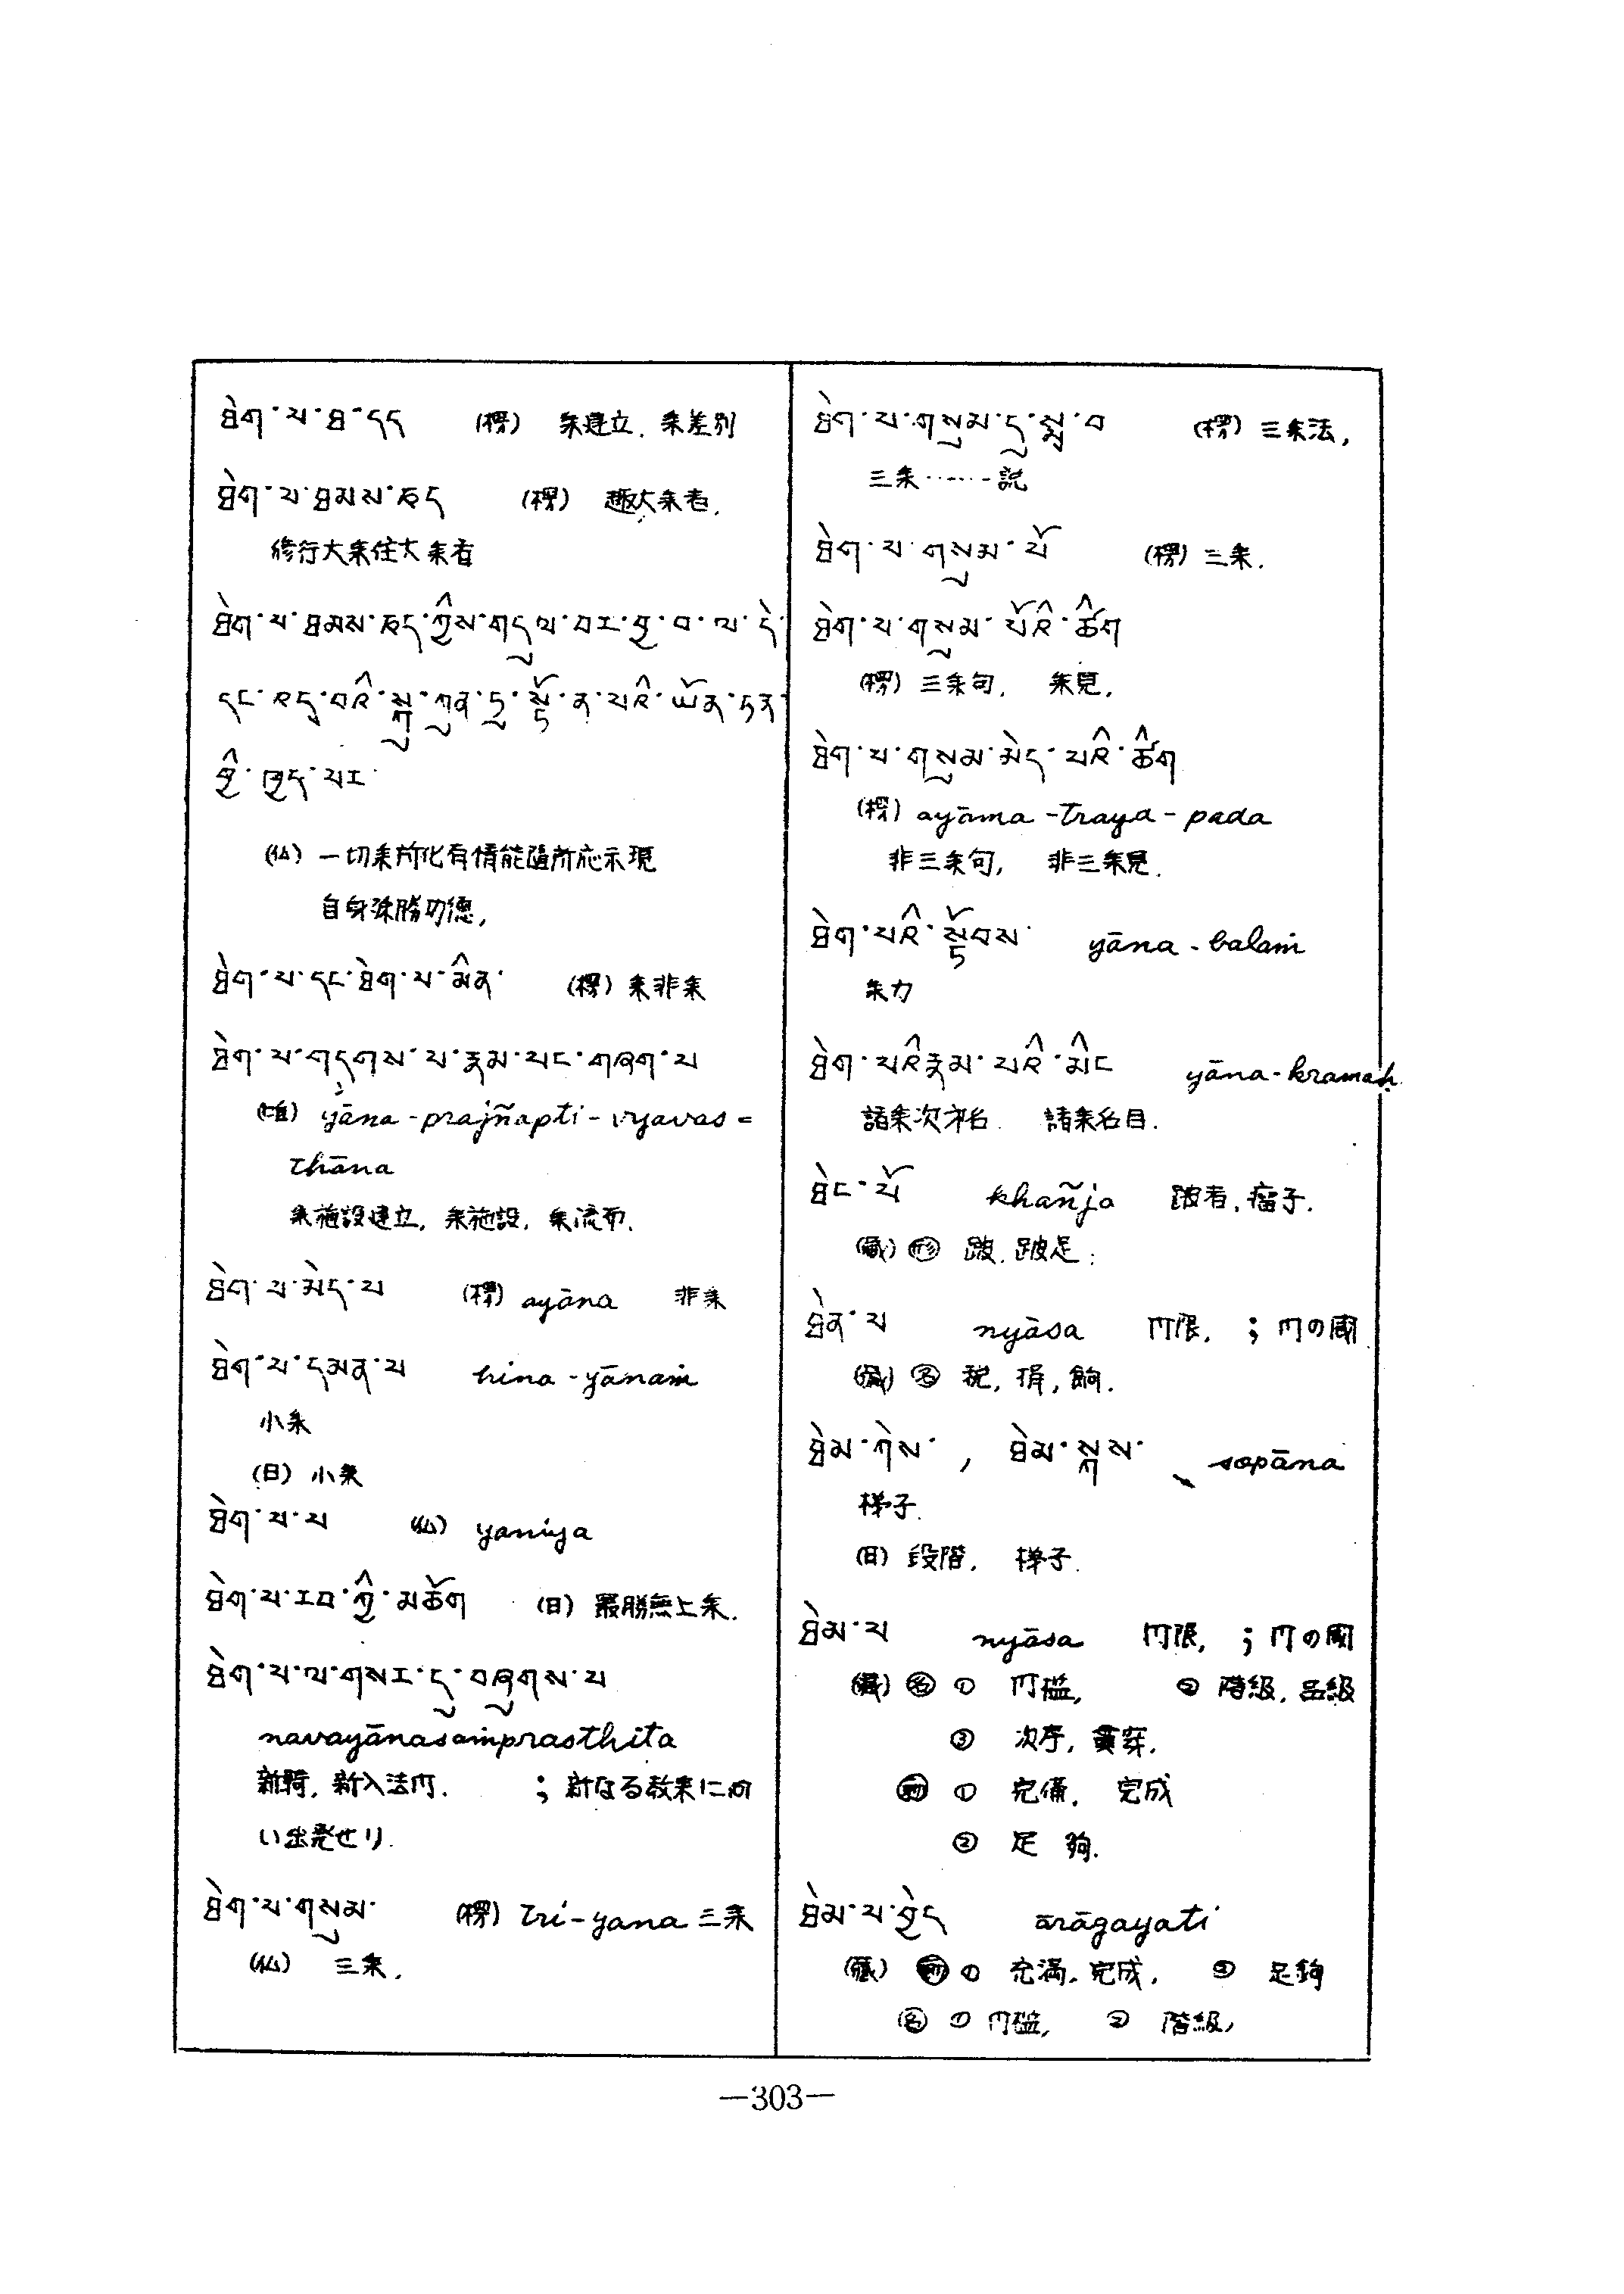 ཐེག་པ་ཐ་དད (楞) 乗建立. 乗差別
ཐེག་པ་ཐམས་ཅད (楞) 趣大乗者.
修行大乗住大乗者
ཐེག་པ་ཐམས་ཅད་ཀྱིས་གདུལ་བར་བྱ་བ་ལ་དེ་
དང་འདུ་བའི་སྐུ་ཀུན་ཏུ་སྟོན་པའི་ཡོན་ཏན་
གྱི་ཁྱད་པར་
(仏) 一切乗所化有情能隨所応示現
自身殊勝功徳,
ཐེག་པ་དང་ཐེག་པ་མིན་ (楞) 乗非乗
ཐེག་པ་གདགས་པ་རྣམ་པང་གཞག་པ
yāna-prajñapti-vyavas=
thāna
乗施設建立, 乗施設, 乗流布.
ཐེག་པ་མེད་པ (楞) ayāna 非乗
ཐེག་པ་དམན་པ hina-yānaṁ
小乗
(日) 小乗
ཐེག་པ་པ (仏) yaniya
ཐེག་པ་རབ་ཀྱི་མཆོག (日) 最勝無上乗.
ཐེག་པ་ལ་གསར་དུ་བཞུགས་པ
navayānasaṁprasthita
新騎, 新入法门. ; 新なる教乗に向
い出発せり.
ཐེག་པ་གསུམ་ (楞) tri-yana 三乗
(仏) 三乗.
ཐེག་པ་གསུམ་དུ་སྨྲ་བ (楞) 三乗法,
三乗……説
ཐེག་པ་གསུམ་པོ (楞) 三乗.
ཐེག་པ་གསུམ་པོའི་ཚིག
(楞) 三乗句, 乗見,
ཐེག་པ་གསུམ་མེད་པའི་ཚིག
(楞) ayāma-traya-pada
非三乗句, 非三乗見.
ཐེག་པའི་སྟོབས་ yāna-balaṁ
乗力
ཐེག་པའི་རྣམ་པའི་མིང yāna-kramaḥ
諸乗次名. 諸乗名目.
ཐེང་པོ khañja 跛者, 瘤子.
(蔵) ㊒ 跛. 跛足;
ཐེན་པ nyāsa 门限, ; 门の閾
(蔵) ㊔ 税, 捐, 餉.
ཐེམ་ཀེས་ , ཐེམ་སྐས་ , sopāna
梯子.
(日) 段階, 梯子.
ཐེམ་པ nyāsa 门限, ; 门の閾
(蔵) ㊔ ① 门檻, ② 階級, 品級
③ 次序, 萌芽.
① 完備, 完成
② 足 夠.
ཐེམ་པ་བྱེད ārāgayati
(蔵) ① 充満, 完成, ② 足夠
㊔ ① 门檻, ② 階級,
—303—